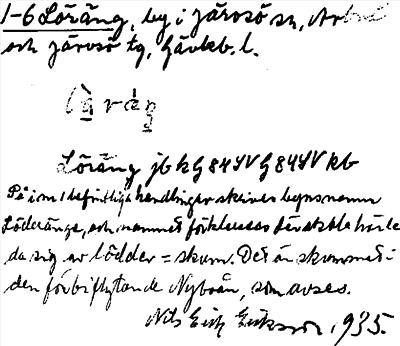 1-6 Löräng, by i Järvsö sn, Arbrå
och Järvsö tg, Gävleb. l.
Löräng jb k G 84 SV G 84 SV kb
På i en / handlingar skrives bynsnamn
Löderänge, och namnet förklaras där
da sig av lödder = skum. Det är skummet i
den förbiflytande Nyboån, som avses.
Nils Erik Eriksson, 1935.